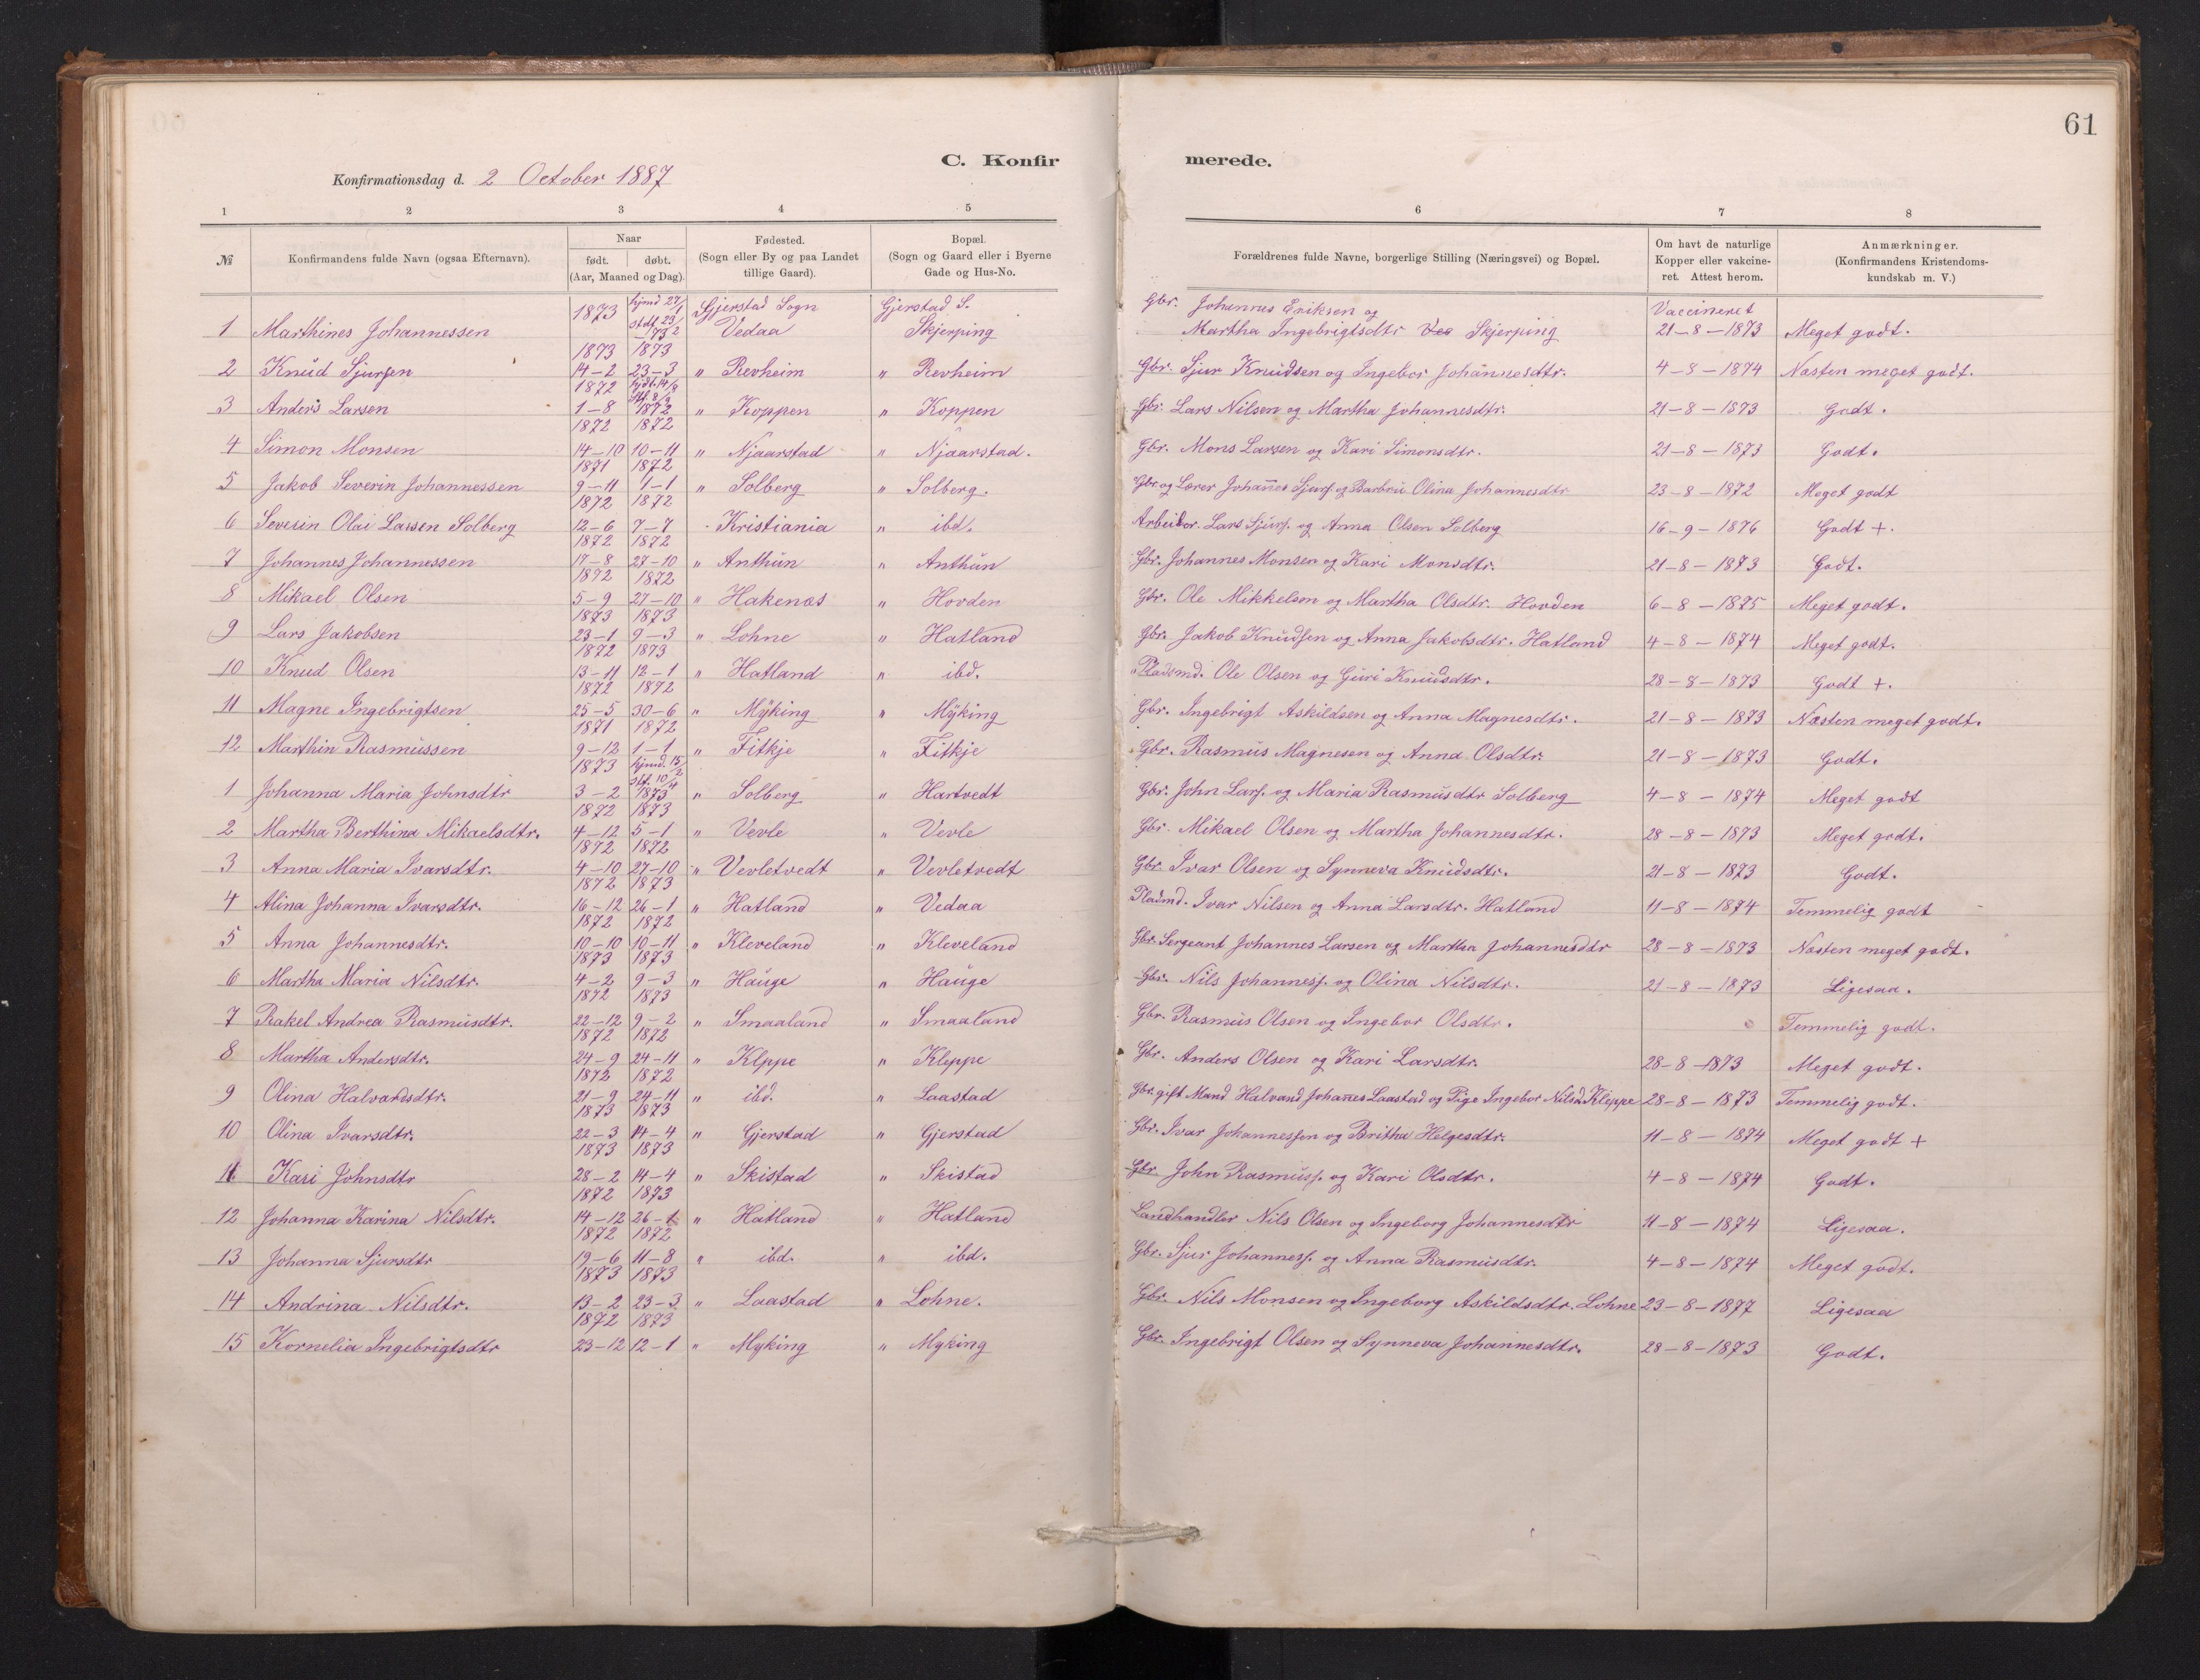 61
C. Konfirmerede.
Konfirmationsdag d. 2 October 1887
1 2 3 4 5 6 7 8
№ Konfirmandens fulde Navn (ogsaa Efternavn). Naar født. døbt. (Aar, Maaned og Dag). Fødested. (Sogn eller By og paa Landet tillige Gaard). Bopæl. (Sogn og Gaard eller i Byerne Gade og Hus-No. Forældrenes fulde Navne, borgerlige Stilling (Næringsvei) og Bopæl. Om havt de naturlige Kopper eller vakcineret. Attest herom. Anmærkninger. (Konfirmandens Kristendomskundskab m. V.)
1873 hjmd 27/1 Gjerstad Sogn Gjerstad S. Gbr. Johannes Eriksen og Vaccineret
1 Marthines Johannessen stdf. 23/2 73 Vedaa Skjerping Martha Ingebrigtsdtr Skjerping 21-8-1873 Meget godt.
1873 1873
2 Knud Sjursen 14-2 23-3 " Revheim " Revheim Gbr. Sjur Knudsen og Ingebor Johannesdtr. 4-8-1874 Næsten meget godt.
1872
3 Anders Larsen 1-8 1872 " Koppen " Koppen Gbr. Lars Nilsen og Martha Johannesdtr. 21-8-1873 Godt.
1872 1872
4 Simon Monsen 14-10 10-11 " Njaarstad " Njaarstad. Gbr. Mons Larsen og Kari Simonsdtr. 21-8-1873 Godt.
1871 1872
5 Jakob Severin Johannessen 9-11 1-1 " Solberg " Solberg. Gbr og Lærer Johannes Sjurs. og Barbru Olina Johannesdtr 23-8-1872 Meget godt
1872 1872
6 Severin Olai Larsen Solberg 12-6 7-7 - Kristiania " ibd. Arbeider. Lars Sjurs. og Anna Olsen Solberg 16-9-1876 Godt +.
1872 1872
7 Johannes Johannessen 17-8 27-10 " Anthun " Anthun Gbr. Johannes Monsen og Kari Monsdtr. 21-8-1873 Godt.
1872 1872
8 Mikael Olsen 5-9 27-10 " Hakenæs " Hovden Gbr. Ole Mikkelsen og Martha Olsdtr. Hovden 6-8-1875 Meget godt.
1873 1873
9 Lars Jakobsen 23-1 9-3 " Lohne " Hatland Gbr. Jakob Knudsen og Anna Jakobsdtr. Hatland 4-8-1874 Meget godt.
1872 1873
10 Knud Olsen 13-11 12-1 " Hatland " ibd. Pladsmd. Ole Olsen og Guri Knudsdtr. 28-8-1873 Godt +.
1872 1872
11 Magne Ingebrigtsen 25-5 30-6 " Myking " Myking Gbr. Ingebrigt Askildsen og Anna Magnesdtr. 21-8-1873 Næsten meget godt.
1871 1872
12 Marthin Rasmussen 9-12 1-1 " Fitkje " Fitkje Gbr. Rasmus Magnesen og Anna Olsdtr. 21-8-1873 Godt.
1873 hjmd. 15/2 stf. 10/4
1 Johanna Maria Johnsdtr 3-2 1873 " Solberg " Hartvedt Gbr. John Lars. og Maria Rasmusdtr Solberg 4-8-1874 Meget godt
1872 1873
2 Martha Berthina Mikaelsdtr. 4-12 5-1 " Vevle " Vevle Gbr. Mikael Olsen og Martha Johannesdtr. 28-8-1873 Meget godt.
1872 1872
3 Anna Maria Ivarsdtr. 4-10 27-10 " Vevletvedt " Vevletvedt Gbr. Ivar Olsen og Synneva Knudsdtr. 21-8-1873 Godt.
1872 1873
4 Alina Johanna Ivarsdtr. 16-12 26-1 " Hatland " Vedaa Pladmd. Ivar Nilsen og Anna Larsdtr. Hatland 11-8-1874 Temmelig godt
1872 1872
5 Anna Johannesdtr. 10-10 10-11 " Kleveland " Kleveland Gbr. Sergeant Johannes Larsen og Martha Johannesdtr 28-8-1873 Næsten meget godt.
1873 1873
6 Martha Maria Nilsdtr. 4-2 9-3 " Hauge " Hauge Gbr. Nils Johanness. og Olina Nilsdtr. 21-8-1873 Ligesaa.
1872 1873
7 Rakel Andrea Rasmusdtr. 22-12 9-2 " Smaaland " Smaaland Gbr. Rasmus Olsen og Ingebor Olsdtr. Temmelig godt.
1872 1872
8 Martha Andersdtr. 24-9 24-11 " Klppe " Kleppe Gbr. Anders Olsen og Kari Larsdtr. 28-8-1873 Meget godt.
1872 1872
9 Olina Halvardsdtr. 21-9 24-11 " ibd. " Laastad Gbr. gift Mand Halvard Johannes Laastad og Pige Ingebor Nilsd. Kleppe 28-8-1873 Temmelig godt.
1873 1873
10 Olina Ivarsdtr. 22-3 14-4 " Gjerstad " Gjerstad Gbr. Ivar Johannessen og Britha Helgesdtr. 11-8-1874 Meget godt +
1873 1873
11 Kari Johnsdtr 28-2 14-4 " Skistad " Skistad Gbr. John Rasmuss. og Kari Olsdtr. 4-8-1874 Godt.
1872 1873
12 Johanna Karina Nilsdtr. 14-12 26-1 " Hatland " Hatland Landhandler Nils Olsen og Ingeborg Johannesdtr 11-8-1874 Ligesaa.
1872 1872
13 Johanna Sjursdtr 19-6 11-8 " ibd. " ibd. Gbr. Sjur Johanness. og Anna Rasmusdtr. 4-8-1874 Meget godt.
1873 1873
14 Andrina Nilsdtr. 13-2 23-3 " Laastad " Lohne. Gbr. Nils Monsen og Ingeborg Askildsdtr. Lohne 23-8-1877 Ligesaa
1872 1873
15 Kornelia Ingebrigtsdtr 23-12 12-1 " Myking " Myking Gbr. Ingebrigt Olsen og Synneva Johannesdtr. 28-8-1873 Godt.